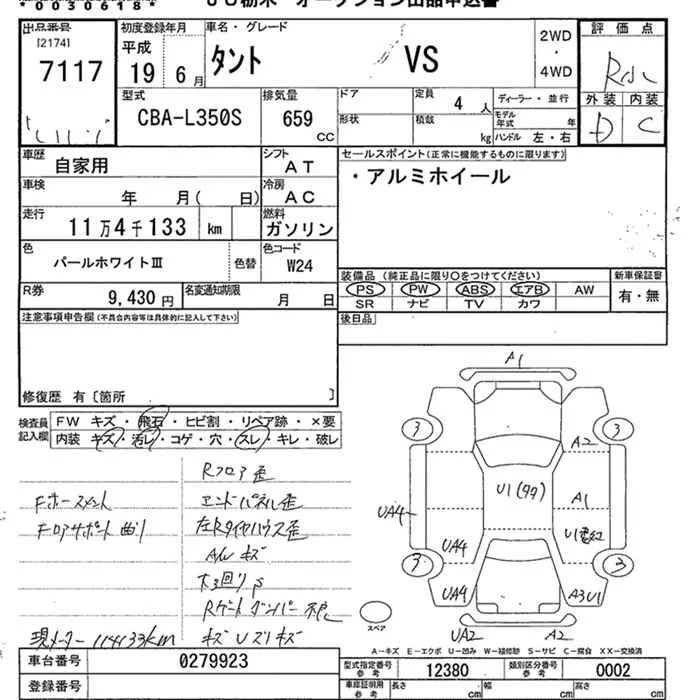 *0030618*
JU栃木 オークション出品申込書
出品番号
[2174]
7117
初度登録年月
平成
19 6 月
車名・グレード
タント VS
2WD
・
4WD
評価点
外装 内装
D C
型式
CBA-L350S
排気量
659
CC
ドア
形状
定員
4 人
積載
kg
ディーラー・並行
モデル年式 年
ハンドル 左・右
車歴
自家用
シフト
AT
車検
年 月( 日)
冷房
AC
走行
11万4千133 km
燃料
ガソリン
色
パールホワイトⅢ
色替
色コード
W24
R券
9,430円
名変通知期限
月 日
セールスポイント(正常に機能するものに限ります)
・アルミホイール
装備品(純正品に限り○をつけてください)
PS PW ABS エアB AW
SR ナビ TV カワ
新車保証書
有・無
後日品
注意事項申告欄(不具合内容等は具体的に記入して下さい)
修復歴 有〔箇所 〕
検査員記入欄
FW キズ・飛石・ヒビ割・リペア跡・×要
内装 キズ・汚レ・コゲ・穴・スレ・キレ・破レ
Rフロア歪
エンドパネル歪
左Rタイヤハウス歪
A/Wキズ
Fホースメント
Fロアサポート曲り
Rゲートダンパー不良
現メーター 114133km
キズUズリキズ
A1
3 3
A2
U1(タタ)
A1
UA4
UA4
UA4
3 3
A3U1
UA2 A2
スペア
A-キズ E-エクボ U-凹み W-補修跡 S-サビ C-腐食 XX-交換済
車台番号
0279923
登録番号
型式指定番号
参考
12380
類別区分番号
参考
0002
車庫証明用
参考
長さ cm
幅 cm
高さ cm